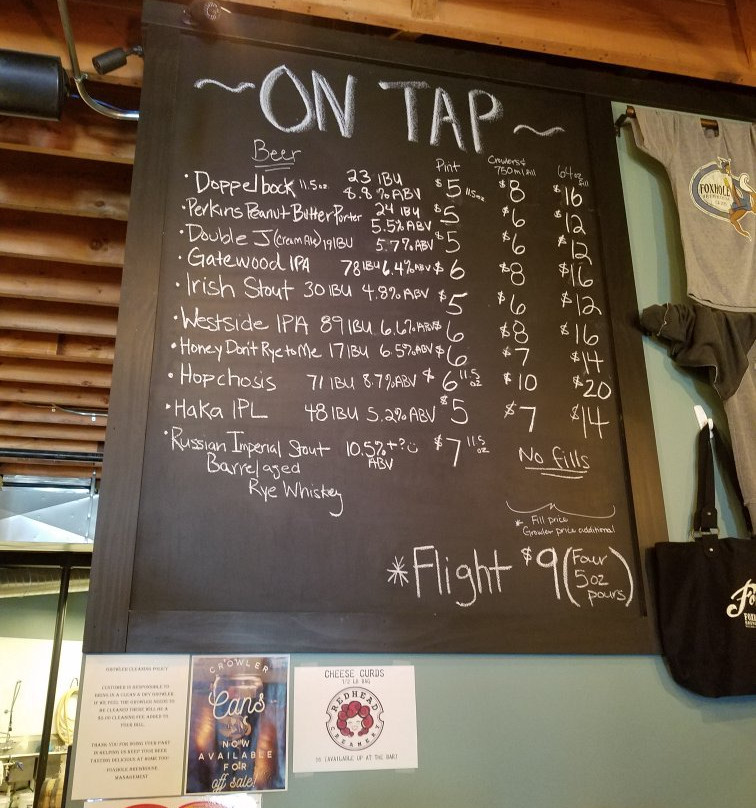 ~ ON TAP ~
Beer Pint Crowlers & 750ml fill 64oz fill
• Doppelbock 11.5oz 23 IBU 8.8% ABV $5 11.5oz $8 $16
• Perkins Peanut Butter Porter 24 IBU 5.5% ABV $5 $6 $12
• Double J (Cream Ale) 19 IBU 5.7% ABV $5 $6 $12
• Gatewood IPA 78 IBU 6.4% ABV $6 $8 $16
• Irish Stout 30 IBU 4.8% ABV $5 $6 $12
• Westside IPA 89 IBU 6.6% ABV $6 $8 $16
• Honey Don't Rye to Me 17 IBU 6.5% ABV $6 $7 $14
• Hopchosis 71 IBU 8.7% ABV $6 11.5 oz $10 $20
• Haka IPL 48 IBU 5.2% ABV $5 $7 $14
• Russian Imperial Stout 10.5% +? ABV $7 11.5 oz No fills
Barrel aged
Rye Whiskey
* Fill price
Growler price additional
* Flight $9 (Four 5oz pours)
FOXHOLE
GROWLER CLEANING POLICY
CUSTOMER IS RESPONSIBLE TO
BRING IN A CLEAN & DRY GROWLER.
IF WE FEEL THE GROWLER NEEDS TO
BE CLEANED THERE WILL BE A
CLEANING FEE ADDED TO
YOUR BILL.
THANK YOU FOR DOING YOUR PART
IN HELPING US KEEP YOUR BEER
TASTING DELICIOUS AT HOME TOO!
FOXHOLE BREWHOUSE
MANAGEMENT
CROWLER
Cans
NOW
AVAILABLE
FOR
off sale!
CHEESE CURDS
1/2 LB BAG
REDHEAD
CREAMERY
(AVAILABLE UP AT THE BAR)